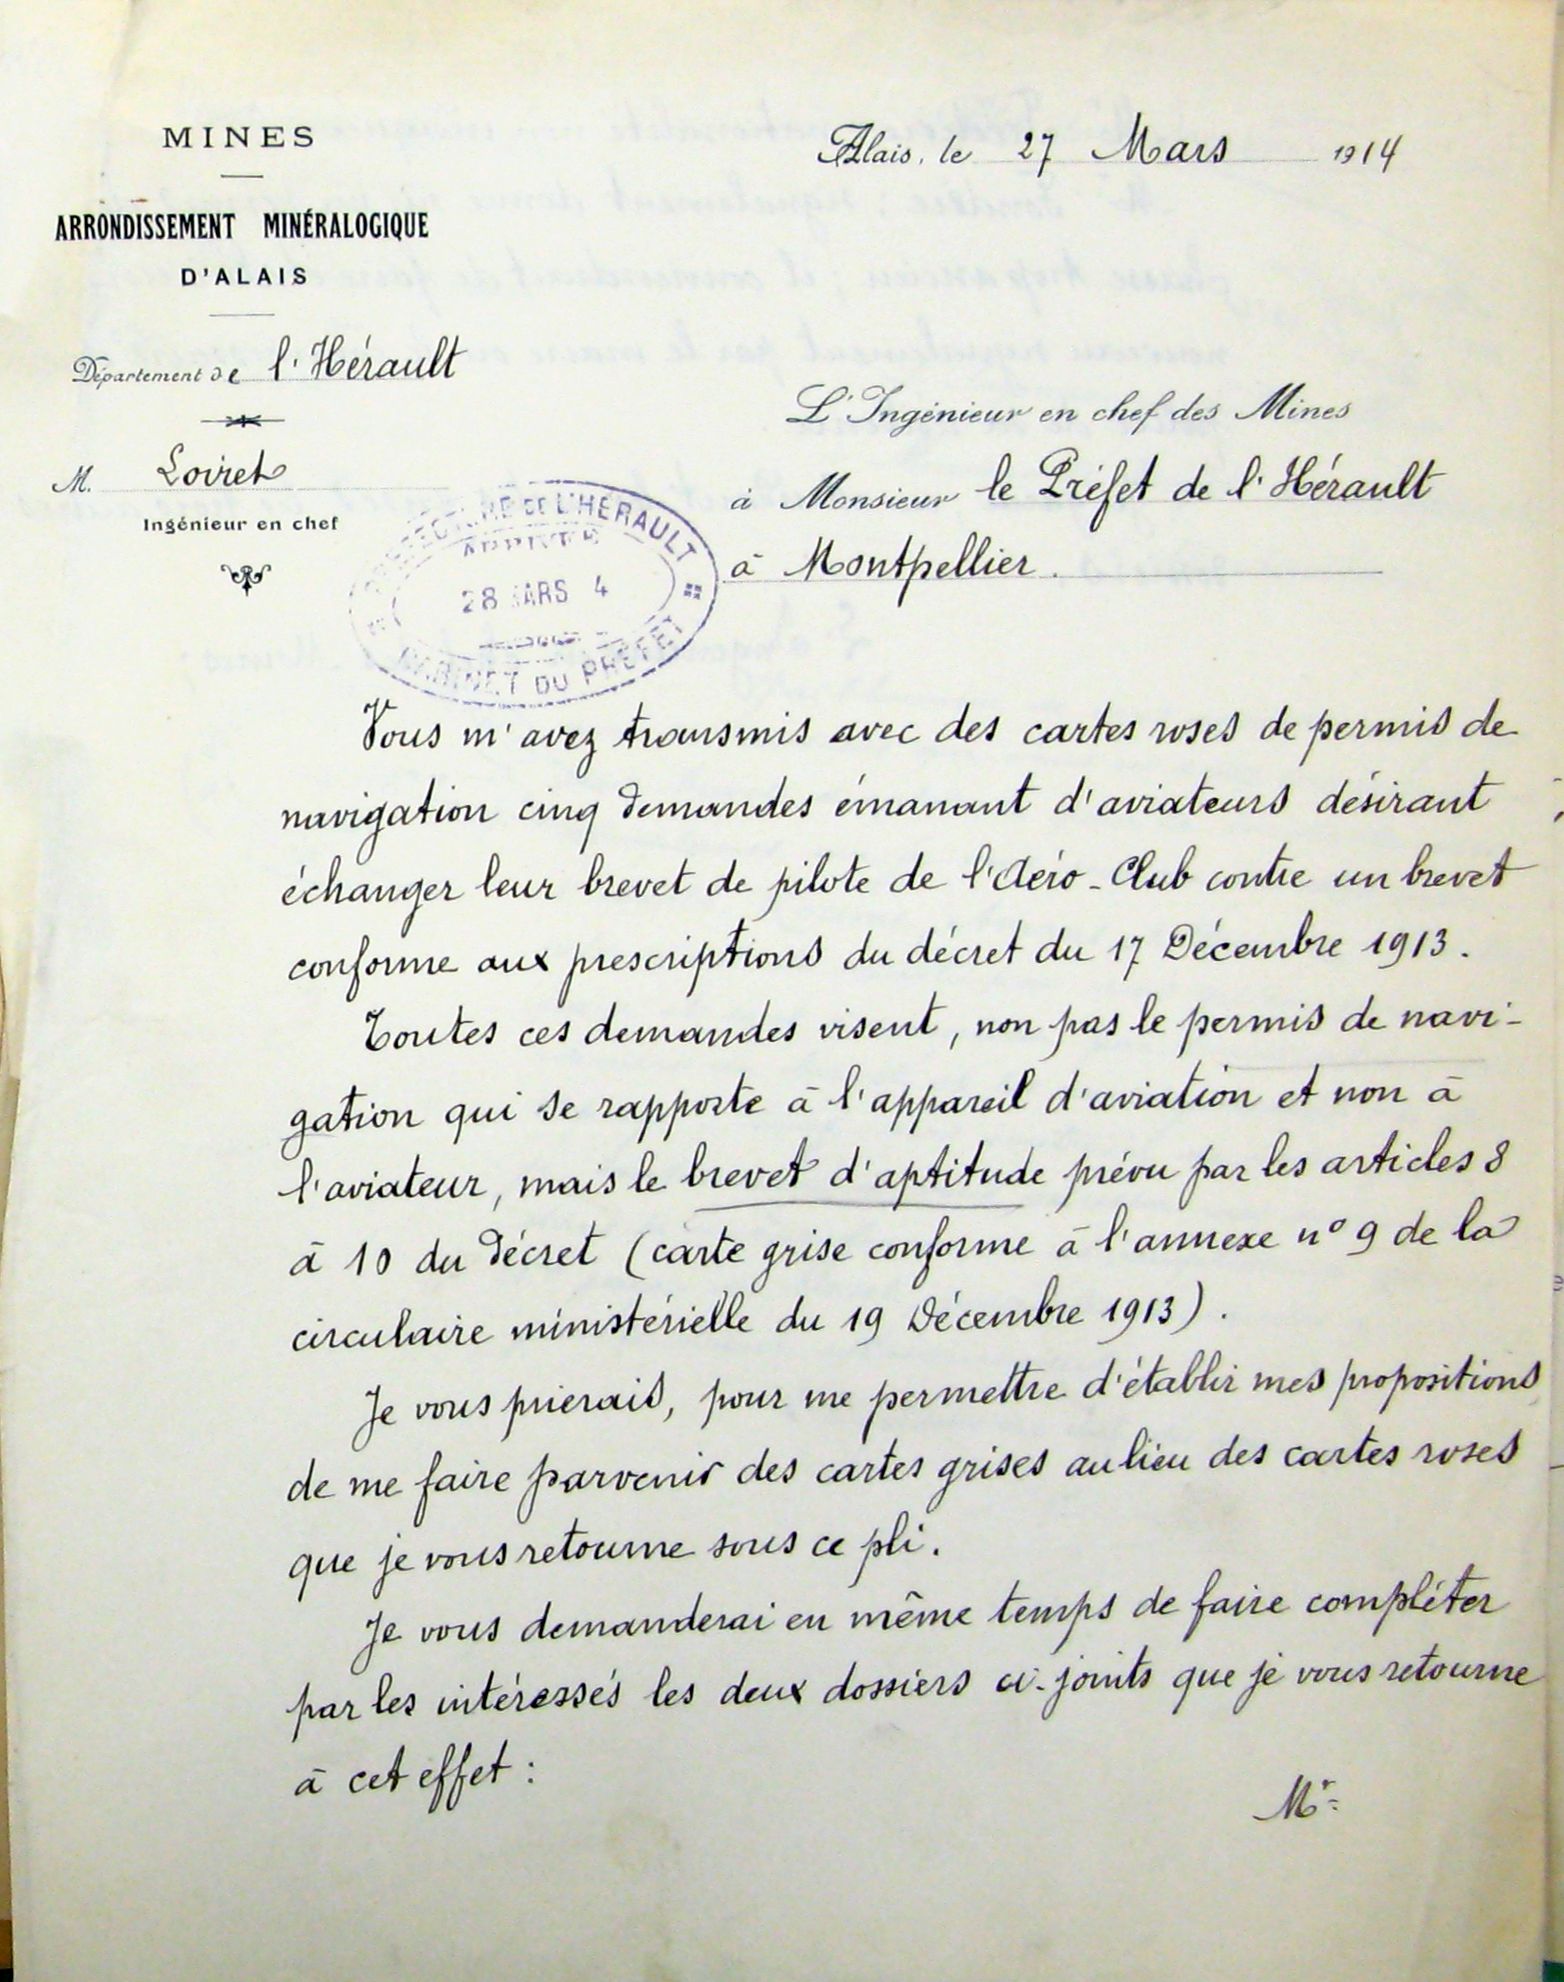 MINES
ARRONDISSEMENT MINÉRALOGIQUE
D'ALAIS
Département de l'Hérault
M. Loiret
Ingénieur en chef
Alais, le 27 Mars 1914
L'Ingénieur en chef des Mines
à Monsieur le Préfet de l'Hérault
à Montpellier.
DE L'HÉRAULT
ARRIVÉE
28 MARS 4
CABINET DU PRÉFET
Vous m'avez transmis avec des cartes roses de permis de
navigation cinq demandes émanant d'aviateurs désirant
échanger leur brevet de pilote de l'Aéro-Club contre un brevet
conforme aux prescriptions du décret du 17 Décembre 1913.
Toutes ces demandes visent, non pas le permis de navi-
gation qui se rapporte à l'appareil d'aviation et non à
l'aviateur, mais le brevet d'aptitude prévu par les articles 8
à 10 du décret (carte grise conforme à l'annexe n° 9 de la
circulaire ministérielle du 19 Décembre 1913).
Je vous prierais, pour me permettre d'établir mes propositions,
de me faire parvenir des cartes grises au lieu des cartes roses
que je vous retourne sous ce pli.
Je vous demanderai en même temps de faire compléter
par les intéressés les deux dossiers ci-joints que je vous retourne
à cet effet :
Mr